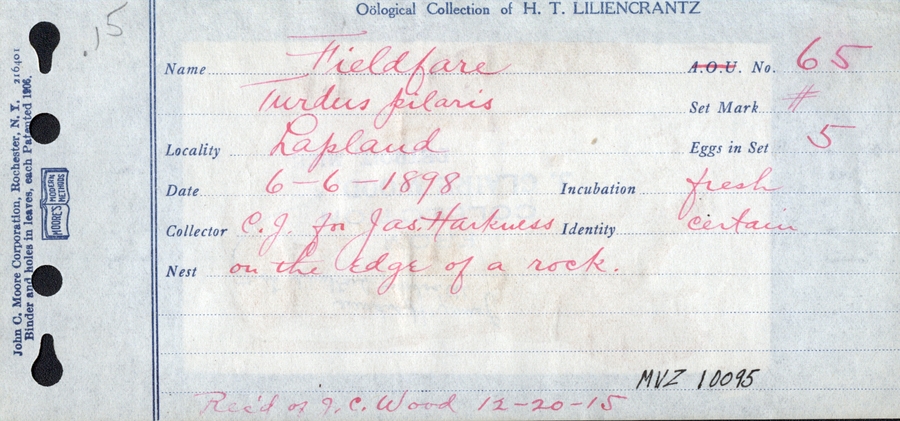 Oölogical Collection of H. T. LILIENCRANTZ
.15
Name Fieldfare A.O.U. No. 65
Turdus pilaris Set Mark #
Locality Lapland Eggs in Set 5
Date 6-6-1898 Incubation fresh
Collector C. J. for Jas. Harkness Identity certain
Nest on the edge of a rock.
MVZ 10095
Rec'd of J. C. Wood 12-20-15
John C. Moore Corporation, Rochester, N. Y. 216401
Binder and holes in leaves, each Patented 1906.
MOORE'S MODERN METHODS